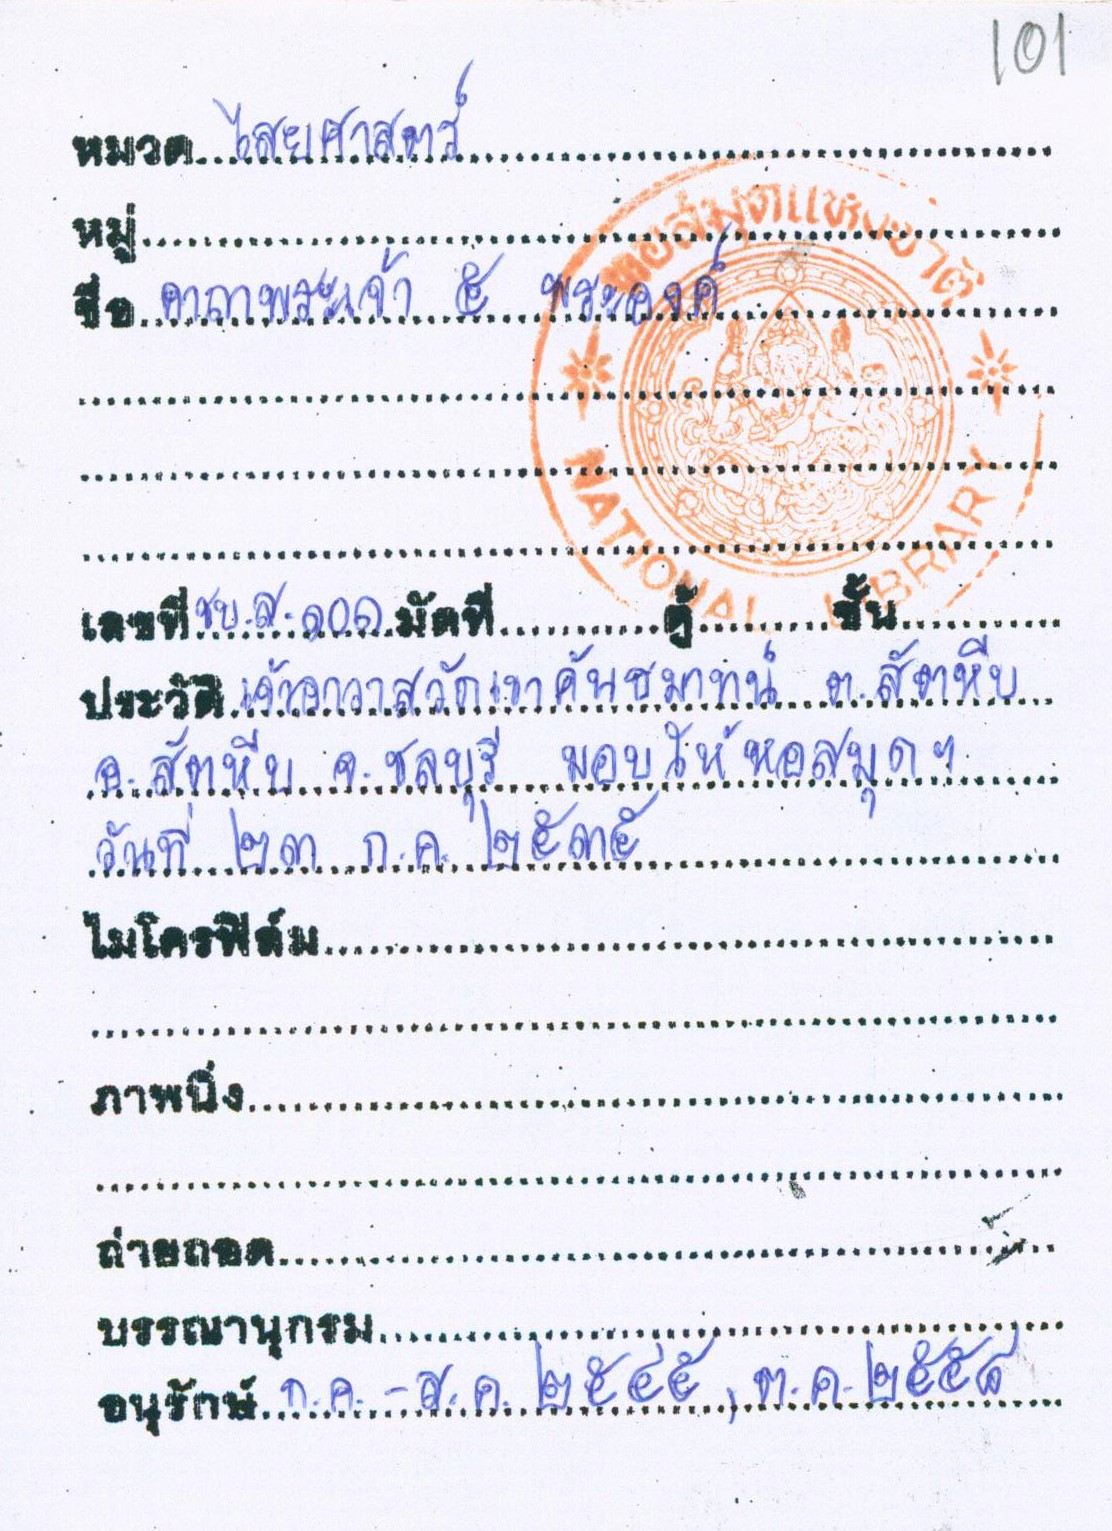 101
หมวด ไสยศาสตร์
หมู่
หอสมุดแห่งชาติ
ชื่อ คาถาพระเจ้า ๕ พระองค์
NATIONAL LIBRARY
เลขที่ ชบ.ส.๑๐๑ มัดที่ ตู้ ชั้น
ประวัติ เจ้าอาวาสวัดเขาคันธมาทน์ ต.สัตหีบ
อ.สัตหีบ จ.ชลบุรี มอบให้หอสมุดฯ
วันที่ ๒๓ ก.ค. ๒๕๓๕
ไมโครฟิล์ม
ภาพนิ่ง
ถ่ายถอด
บรรณานุกรม
อนุรักษ์ ก.ค.-ส.ค. ๒๕๔๕, ต.ค. ๒๕๕๘